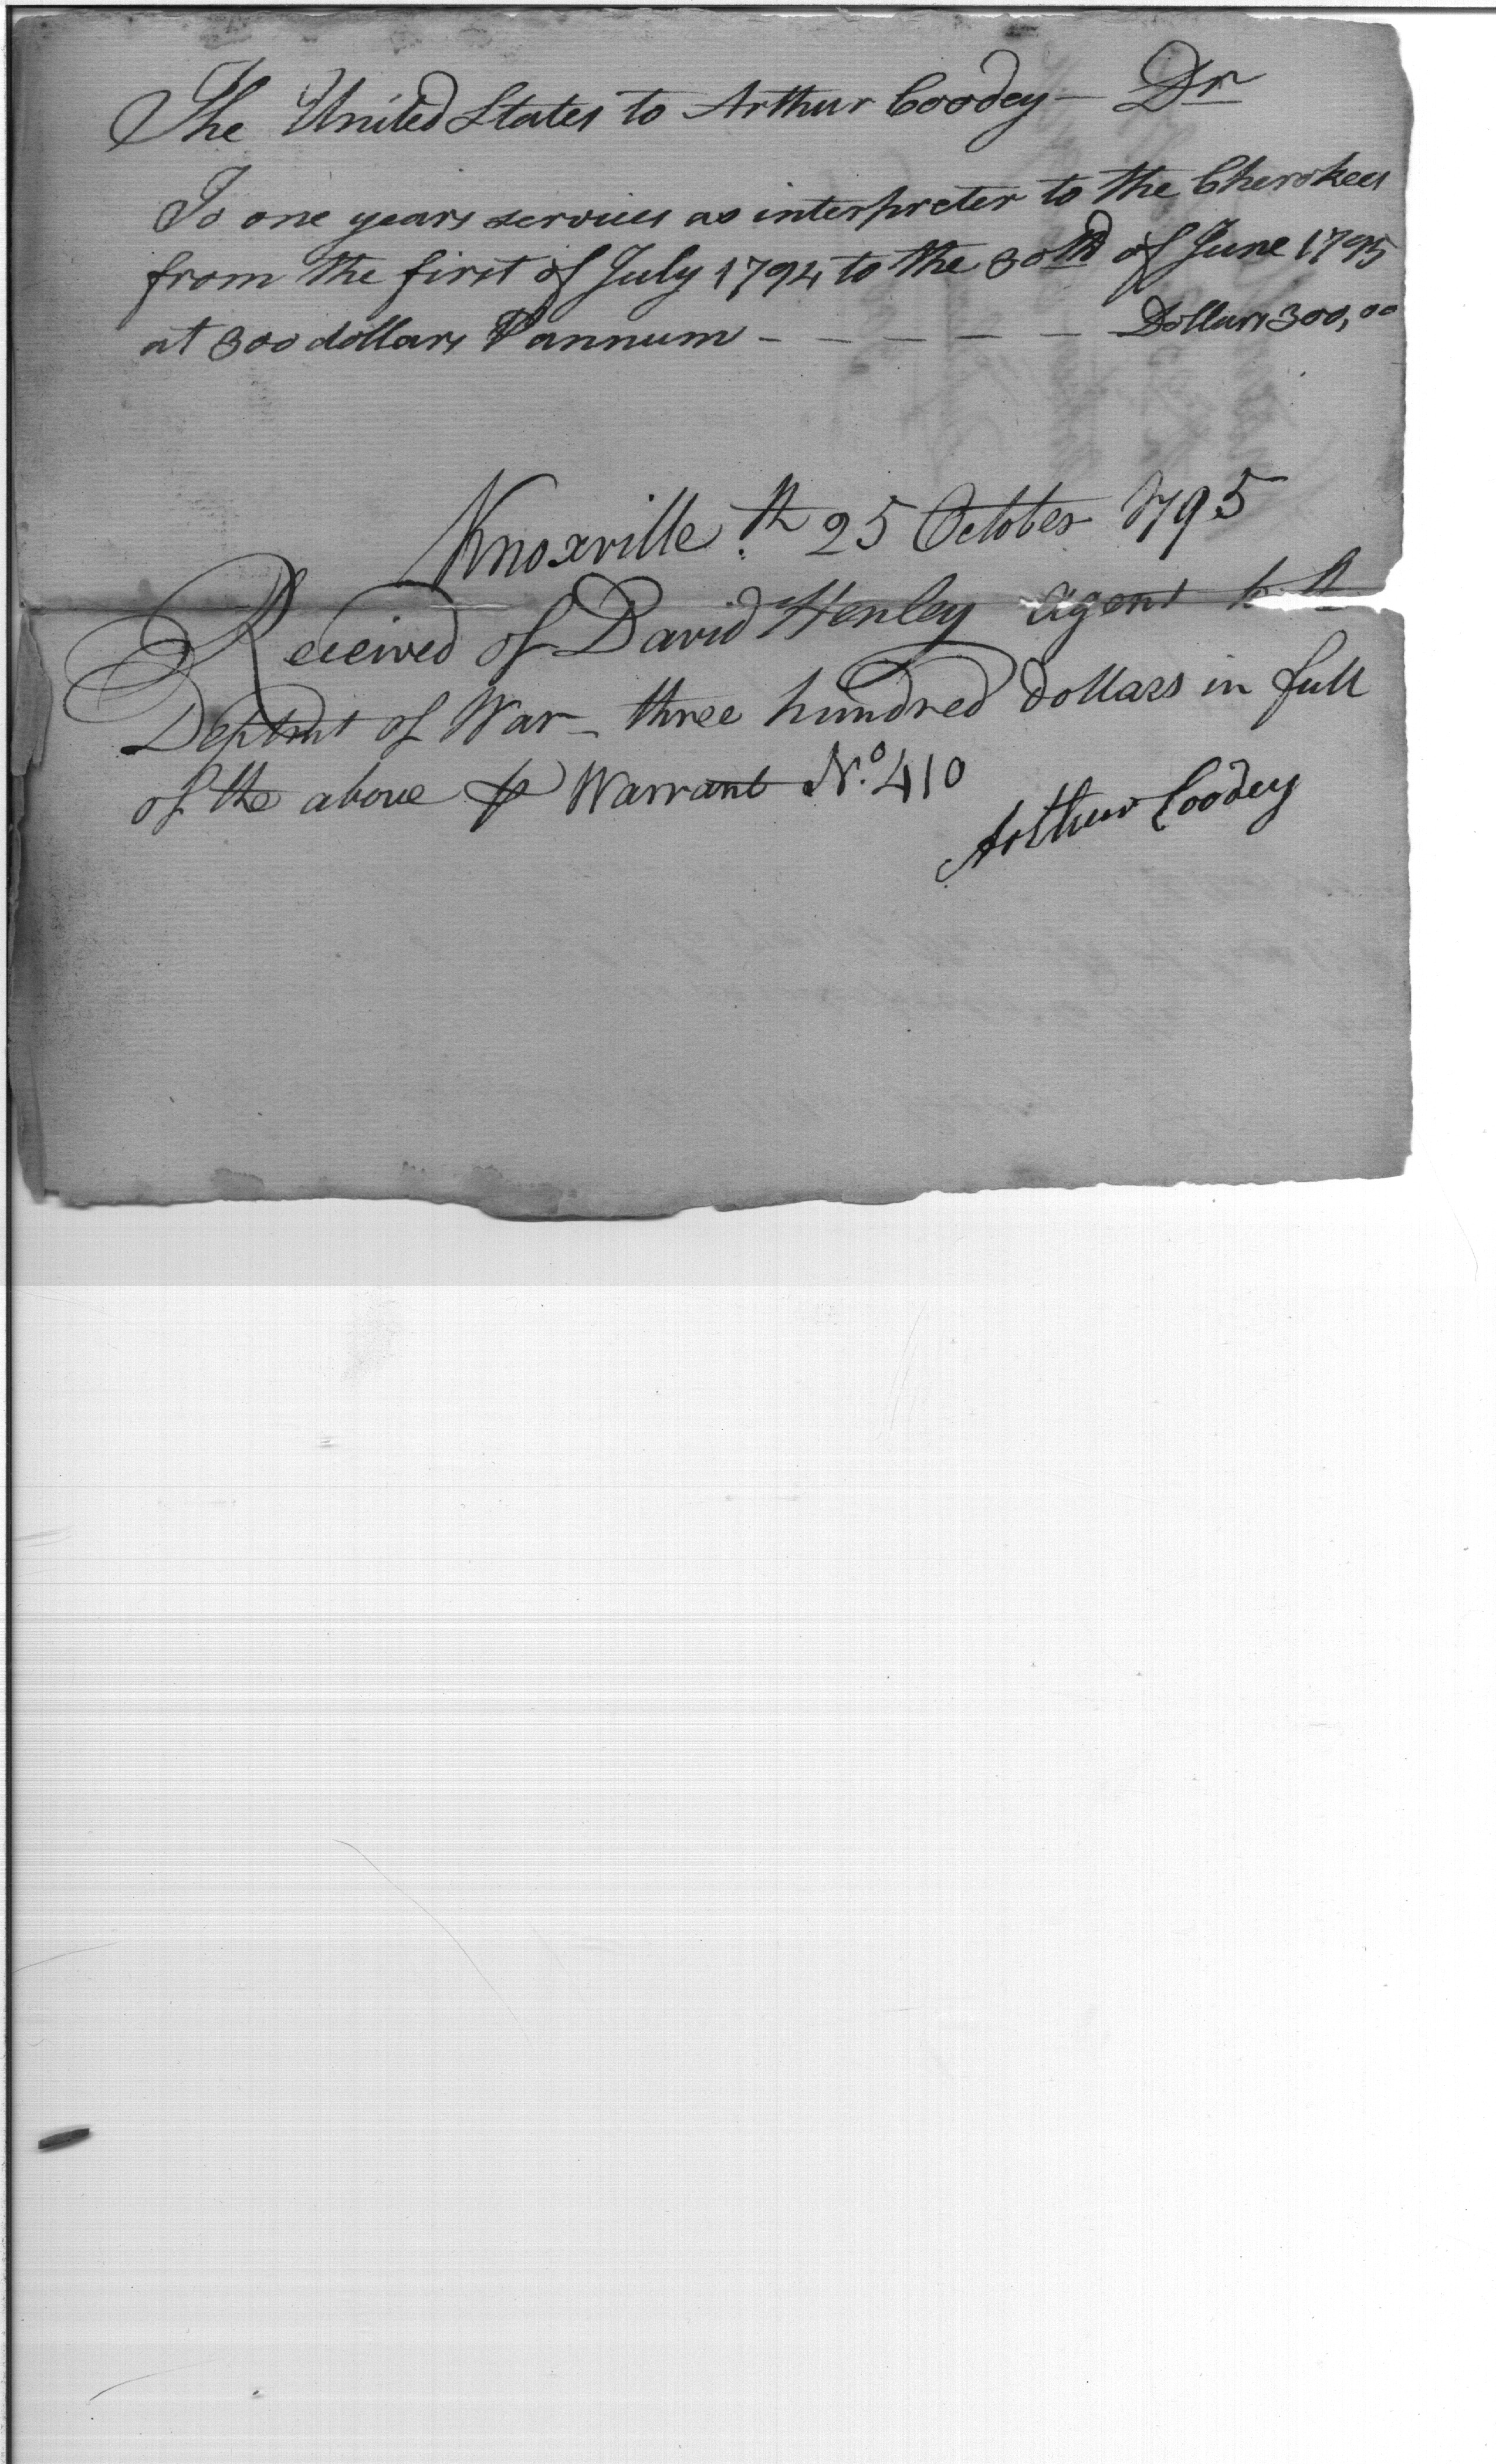 The United States to Arthur Coodey — Dr
To one years services as interpreter to the Cherokees
from the first of July 1794 to the 30th of June 1795
at 300 dollars ⅌ annum – – – – – Dollars 300,00
Knoxville th 25 October 1795
Received of David Henley agent to th
Deptmt of War – three hundred dollars in full
of the above ⅌ Warrant No. 410
Arthur Coodey